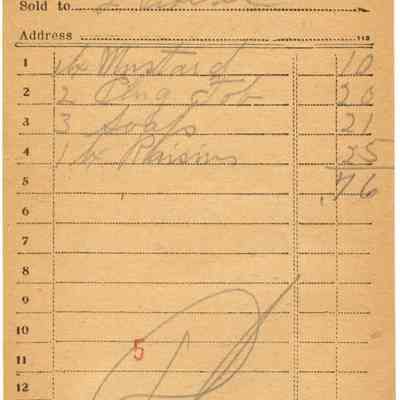 Sold to
Address 113
1 Mustard 10
2 2 Plug Tob 20
3 3 Soaps 21
4 1 lb Raisins 25
5 .76
6
7
8
9
10
11 5
12